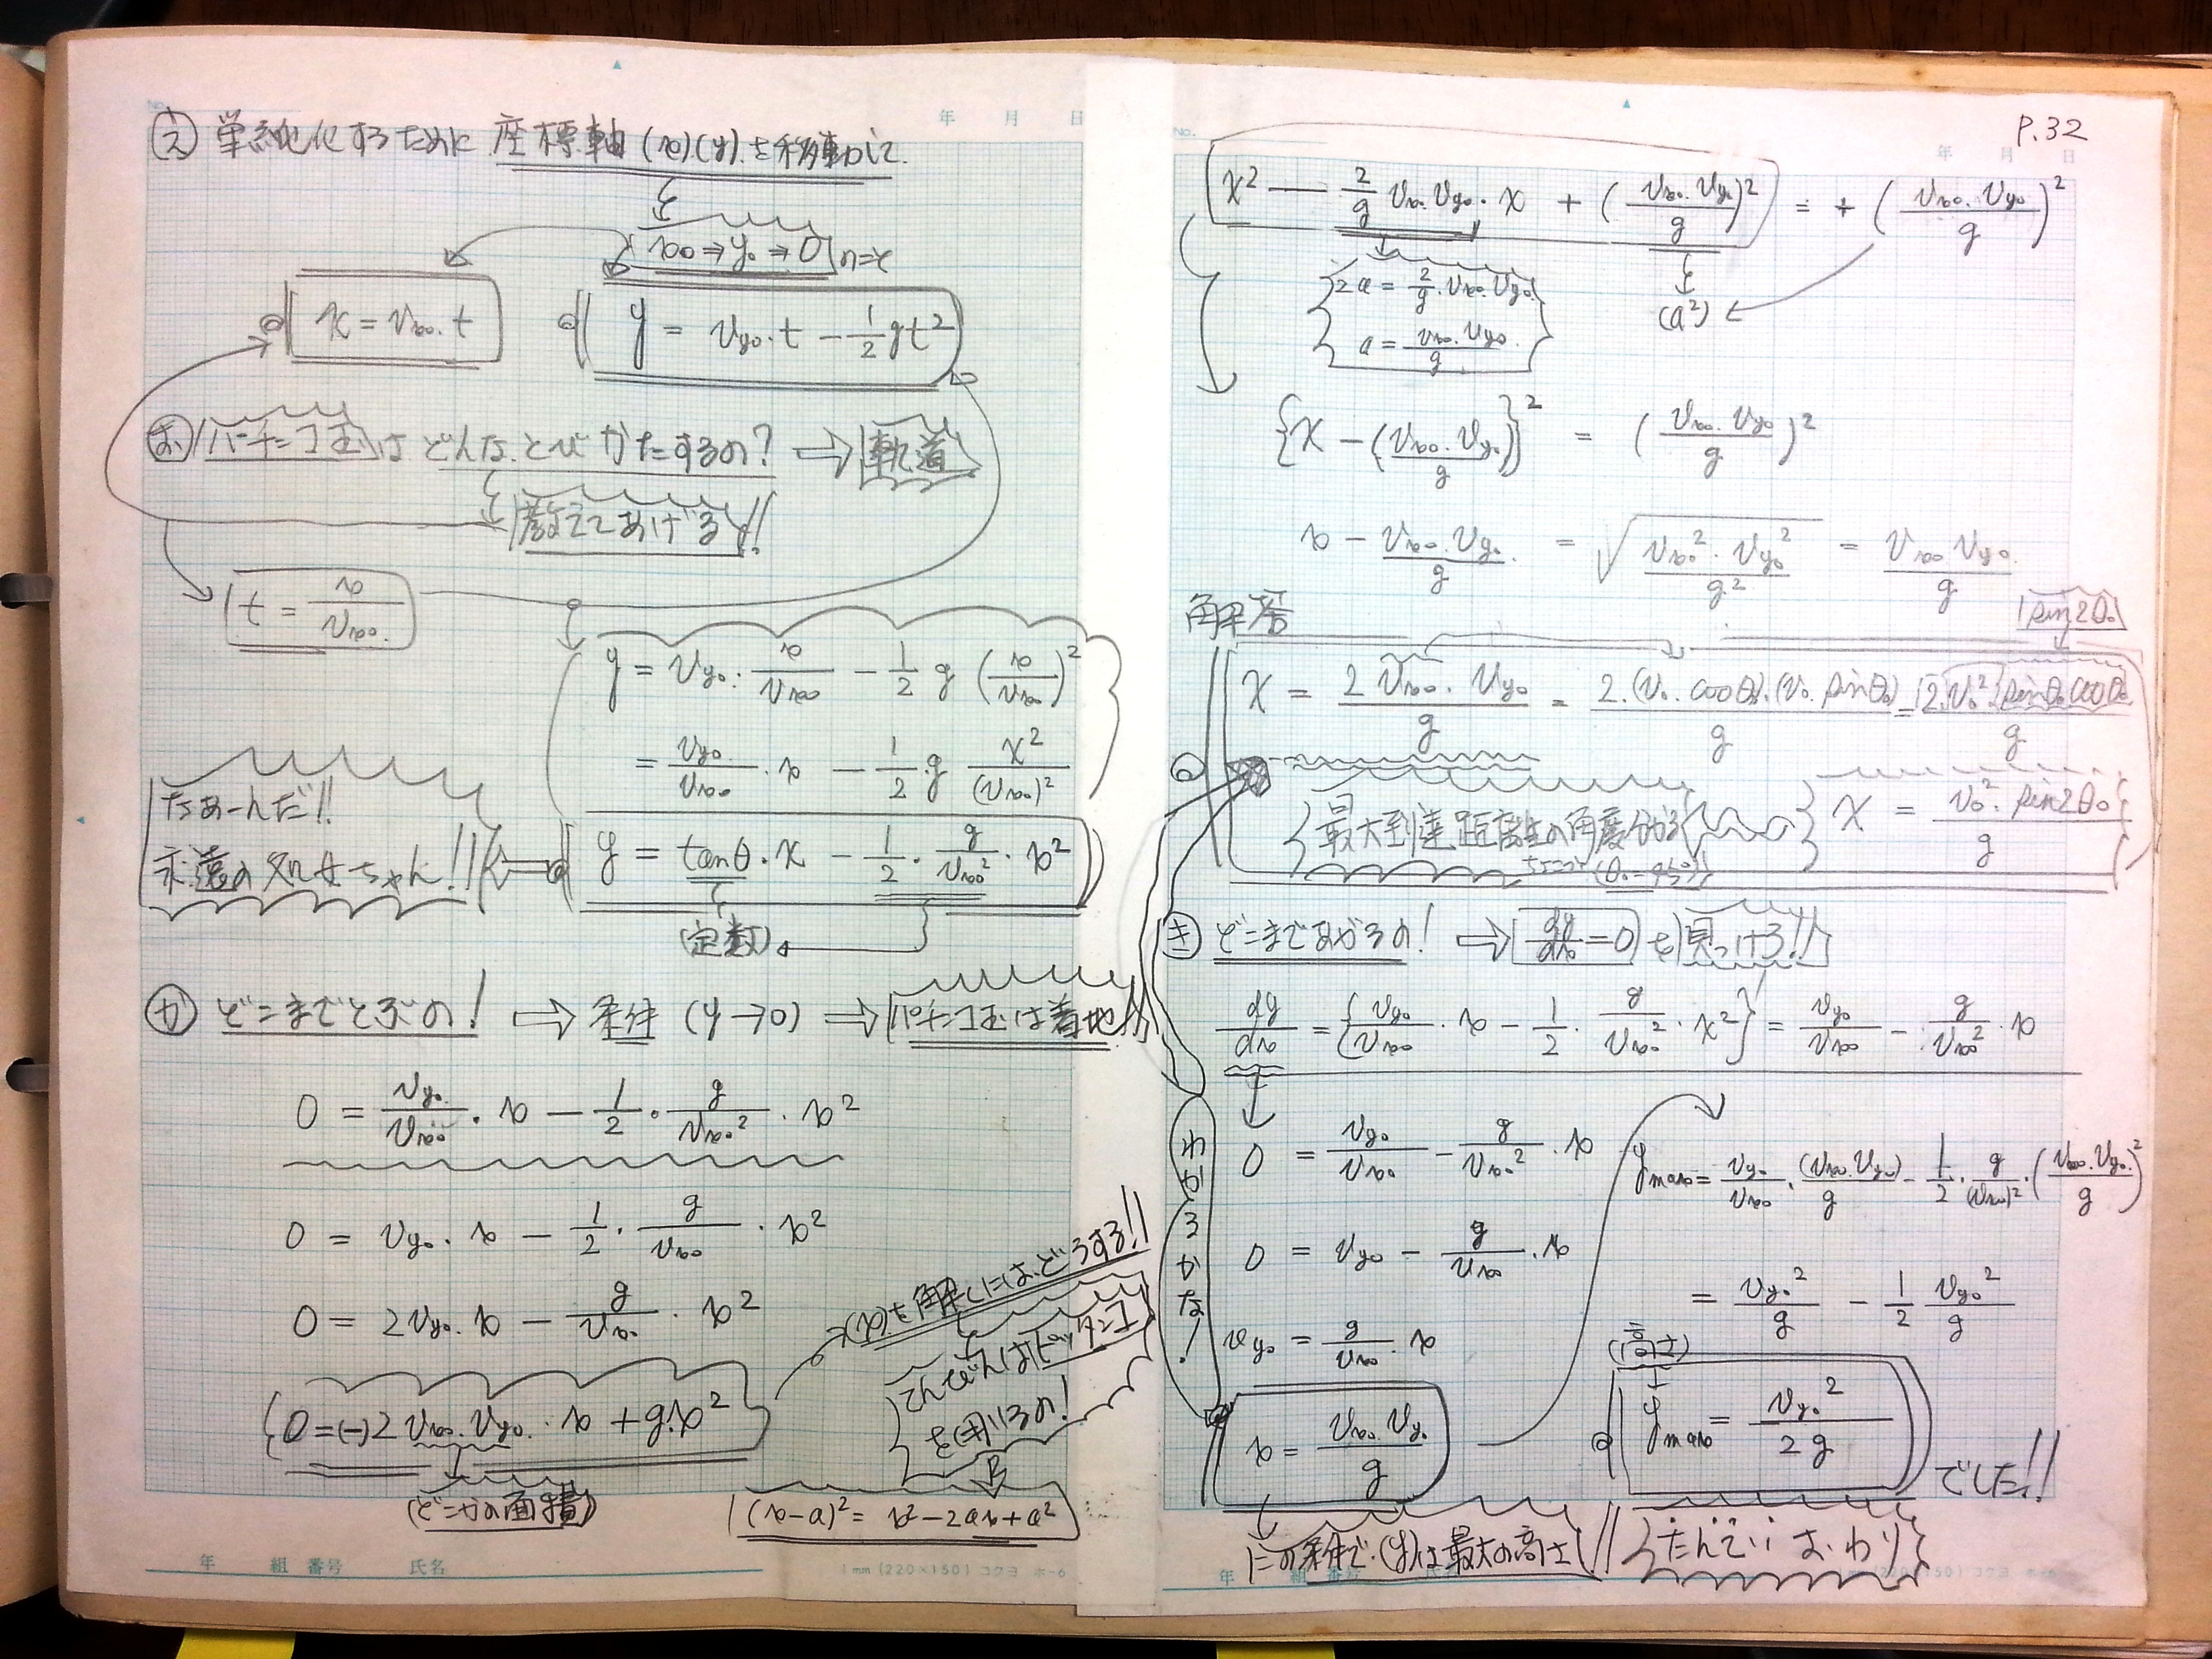 年 月 日
え 単純化するために 座標軸 (x)(y) を移動して
x₀ ⇒ y₀ ⇒ 0
x = vx₀·t
y = vy₀·t − 1/2 gt²
お パチンコ玉は どんな とびかたするの? ⇒ 軌道
教えてあげる!!
t = x/vx₀
y = vy₀· x/vx₀ − 1/2 g (x/vx₀)²
= vy₀/vx₀ · x − 1/2 · g x²/(vx₀)²
なぁーんだ!!
永遠の処女ちゃん!!
y = tanθ·x − 1/2 · g/vx₀² · x²
(定数)
か どこまでとぶの! ⇒ 条件 (y→0) ⇒ パチンコ玉は着地
0 = vy₀/vx₀ · x − 1/2 · g/vx₀² · x²
0 = vy₀·x − 1/2 · g/vx₀ · x²
0 = 2vy₀·x − g/vx₀ · x²
(x)を解くにはどうする!!
0 = (−)2 vx₀·vy₀·x + g·x²
(どこかの面積)
(x−a)² = x² − 2ax + a²
年 組 番号 氏名
1mm (220×150) コクヨ ホ-6
No.
P.32
年 月 日
x² − 2/g vx₀·vy₀·x + (vx₀·vy₀/g)² = + (vx₀·vy₀/g)²
2a = 2/g · vx₀·vy₀
a = vx₀·vy₀/g
(a²)
{x − (vx₀·vy₀/g)}² = (vx₀·vy₀/g)²
x − vx₀·vy₀/g = √(vx₀²·vy₀²/g²) = vx₀ vy₀/g
解答
sin2θ₀
x = 2 vx₀·vy₀/g = 2·(v₀·cosθ₀)·(v₀·sinθ₀)/g = 2·v₀²·sinθ₀cosθ₀/g
最大到達距離の角度分かる
(θ₀=45°)
x = v₀²·sin2θ₀/g
き どこまであがるの! ⇒ dy/dx = 0 を見つける!!
dy/dx = {vy₀/vx₀ · x − 1/2 · g/vx₀² · x²}′ = vy₀/vx₀ − g/vx₀² · x
わかるかな!
0 = vy₀/vx₀ − g/vx₀² · x
0 = vy₀ − g/vx₀ · x
vy₀ = g/vx₀ · x
x = vx₀·vy₀/g
ymax = vy₀/vx₀ · (vx₀·vy₀)/g − 1/2 · g/(vx₀)² · (vx₀·vy₀/g)²
= vy₀²/g − 1/2 vy₀²/g
(高さ)
ymax = vy₀²/2g
でした!!
この条件で(y)は最大の高さ!!
たんてい おわり
年 組 番号